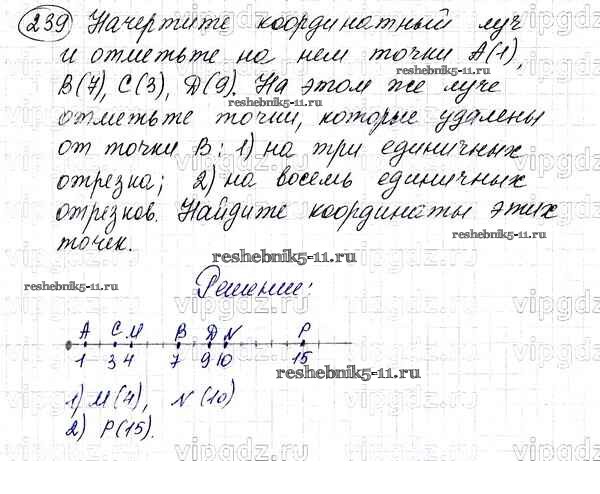 239 Начертите координатный луч
и отметьте на нем точки A(1),
reshebnik5-11.ru
B(7), C(3), D(9). На этом же луче
reshebnik5-11.ru
отметьте точки, которые удалены
от точки B: 1) на три единичных
отрезка; 2) на восемь единичных
отрезков. Найдите координаты этих
reshebnik5-11.ru
точек.
reshebnik5-11.ru
reshebnik5-11.ru
Решение:
A C M B D N P
1 3 4 7 9 10 15
reshebnik5-11.ru
1) M(4), N(10)
2) P(15).
vipgdz.ru